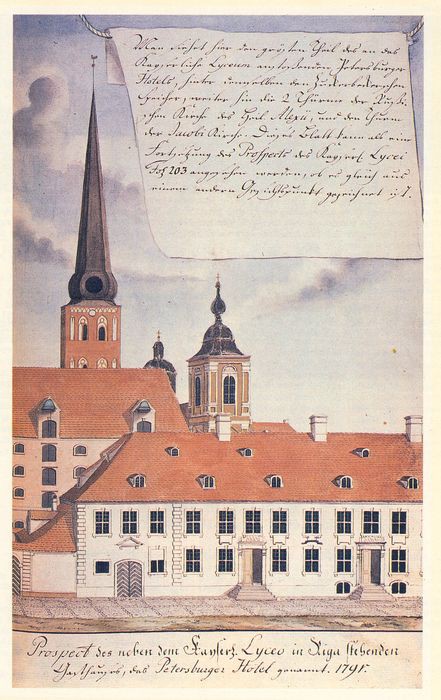 Man siehet hier den grösten Theil des an das
Kayserliche Lyceum anstoßenden Petersburger
Hotels, hinter demselben den Zuckerbeckerschen
Speicher, weiter hin die 2 Thürme der Rußi-
schen Kirche des Heil. Alexii, und den Thurm
der Jacobi Kirche. Dieses Blatt kann als eine
Fortsetzung des Prospects des Kayserl. Lycei
Fol 203 angesehen werden, ob es gleich aus
einem andern Gesichtspunkt gezeichnet ist.
Prospect des neben dem Kayserl. Lyceo in Riga stehenden
Gasthauses, das Petersburger Hotel genannt. 1791.